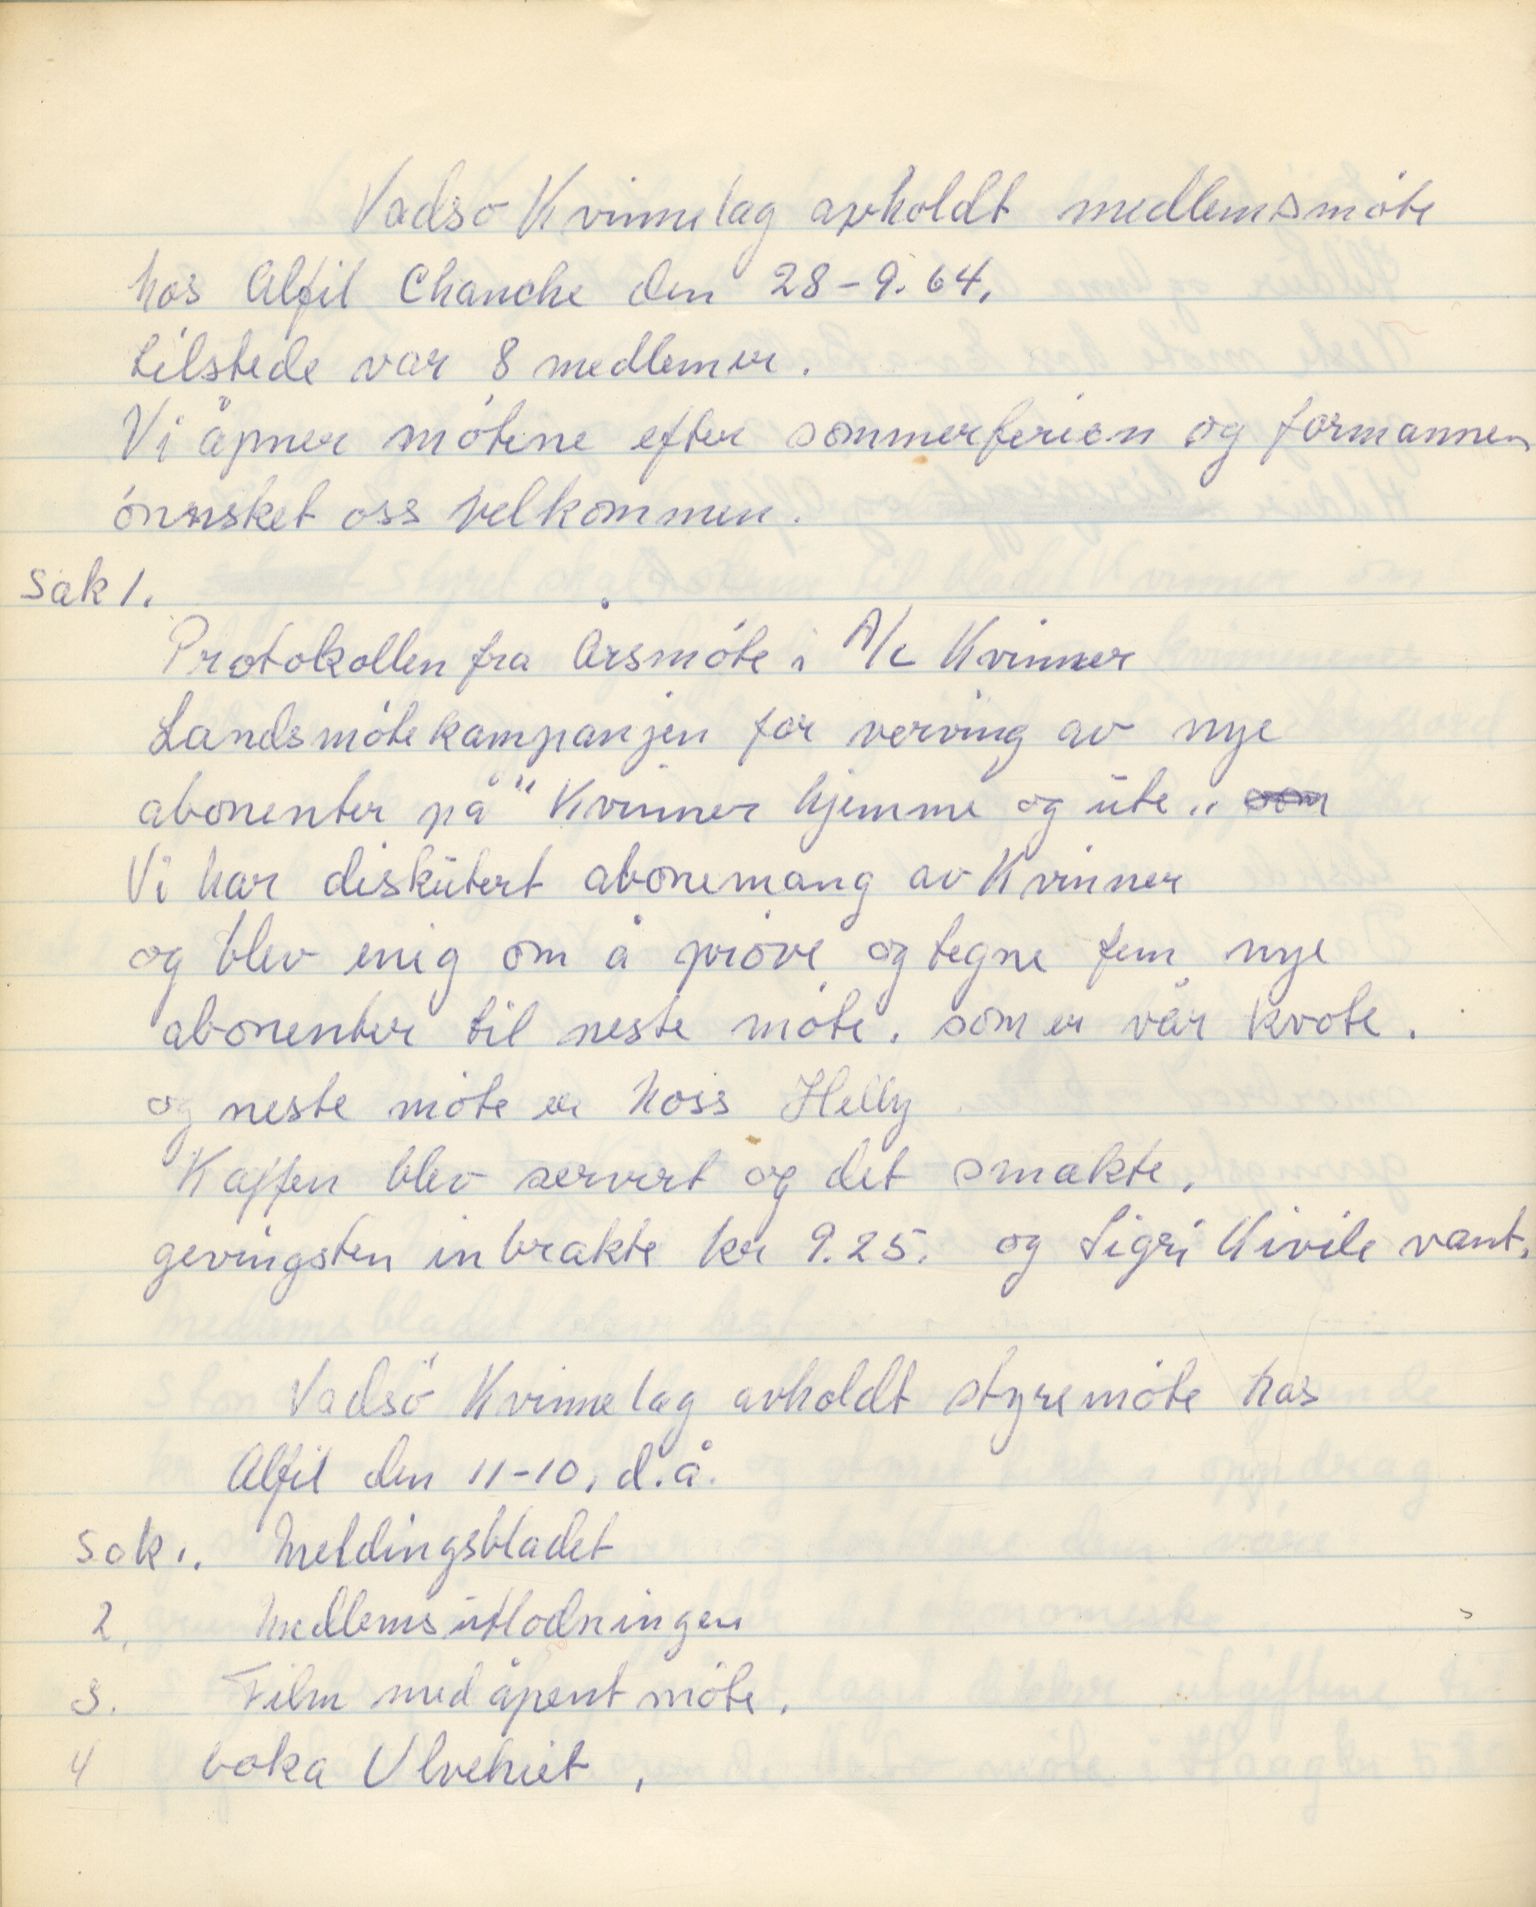 Vadsö Kvinnelag avholdt medlemsmöte
hos Alfil Chanche den 28-9.64.
tilstede var 8 medlemer.
Vi åpner mötene efter sommerferien og formannen
önnsket oss velkommen.
Sak 1.
Protokollen fra Årsmöte i A/L Kvinner
Landsmötekampanjen for verving av nye
abonenter på "Kvinner hjemme og ute" som
Vi har diskutert abonemang av Kvinner
og blev enig om å pröve og tegne fem nye
abonenter til neste möte. som er vår kvote.
og neste möte er hoss Helly
Kaffen blev servert og det smakte.
gevingsten inbrakte kr 9.25. og Sigri Kivile vant.
Vadsö Kvinnelag avholdt styremöte hos
Alfil den 11-10. d.å.
Sak 1. Meldingsbladet
2. Medlemsutlodningen
3. Film med åpent möte.
4 boka Ulvehiet.